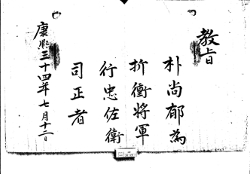 教旨
朴尚郁為
折衝將軍
行忠佐衛
司正者
康熙三十四年七月十二日